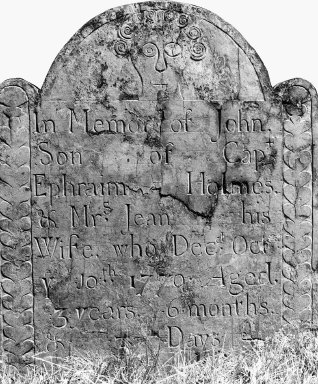 In Memory of John,
Son of Capt
Ephraim Holmes.
& Mrs Jean his
Wife, who Decd Octr
ye 10th 1770. Aged
3 years 6 months.
& Days